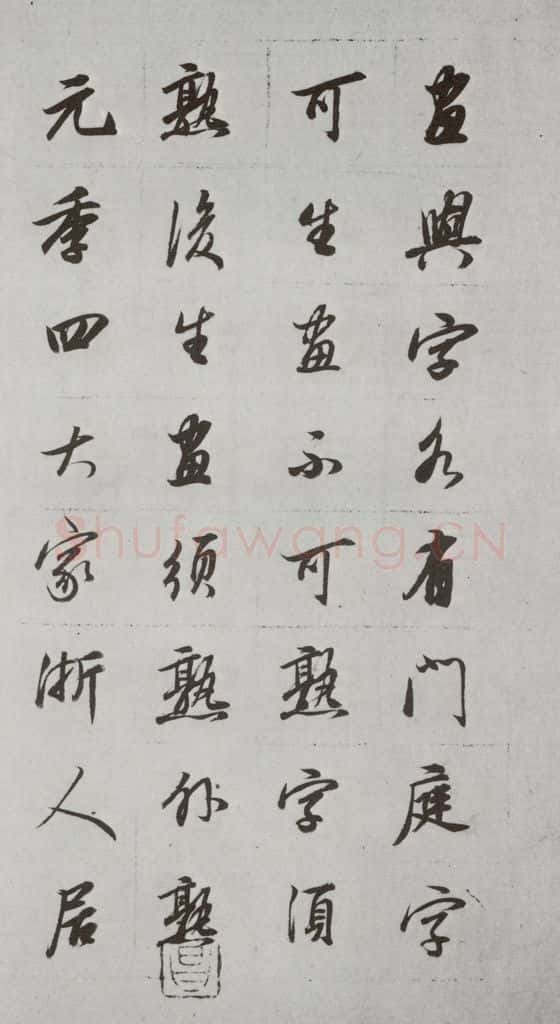 畫與字各有門庭字
可生畫不可熟字須
熟後生畫須熟外熟
元季四大家浙人居
Shufawang.CN